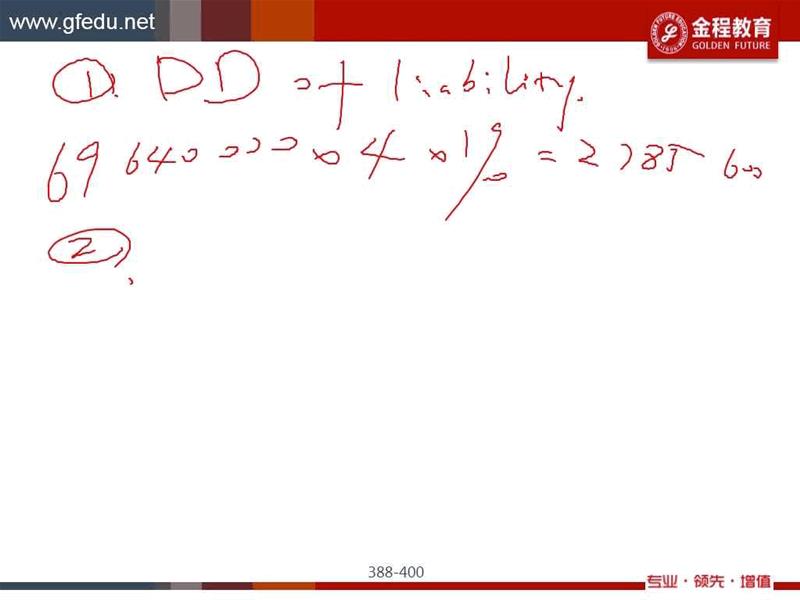 www.gfedu.net
金程教育
GOLDEN FUTURE
①. DD = + liability.
69 640 000 × 4 × 1% = 2 785 600
②.
388-400
专业·领先·增值